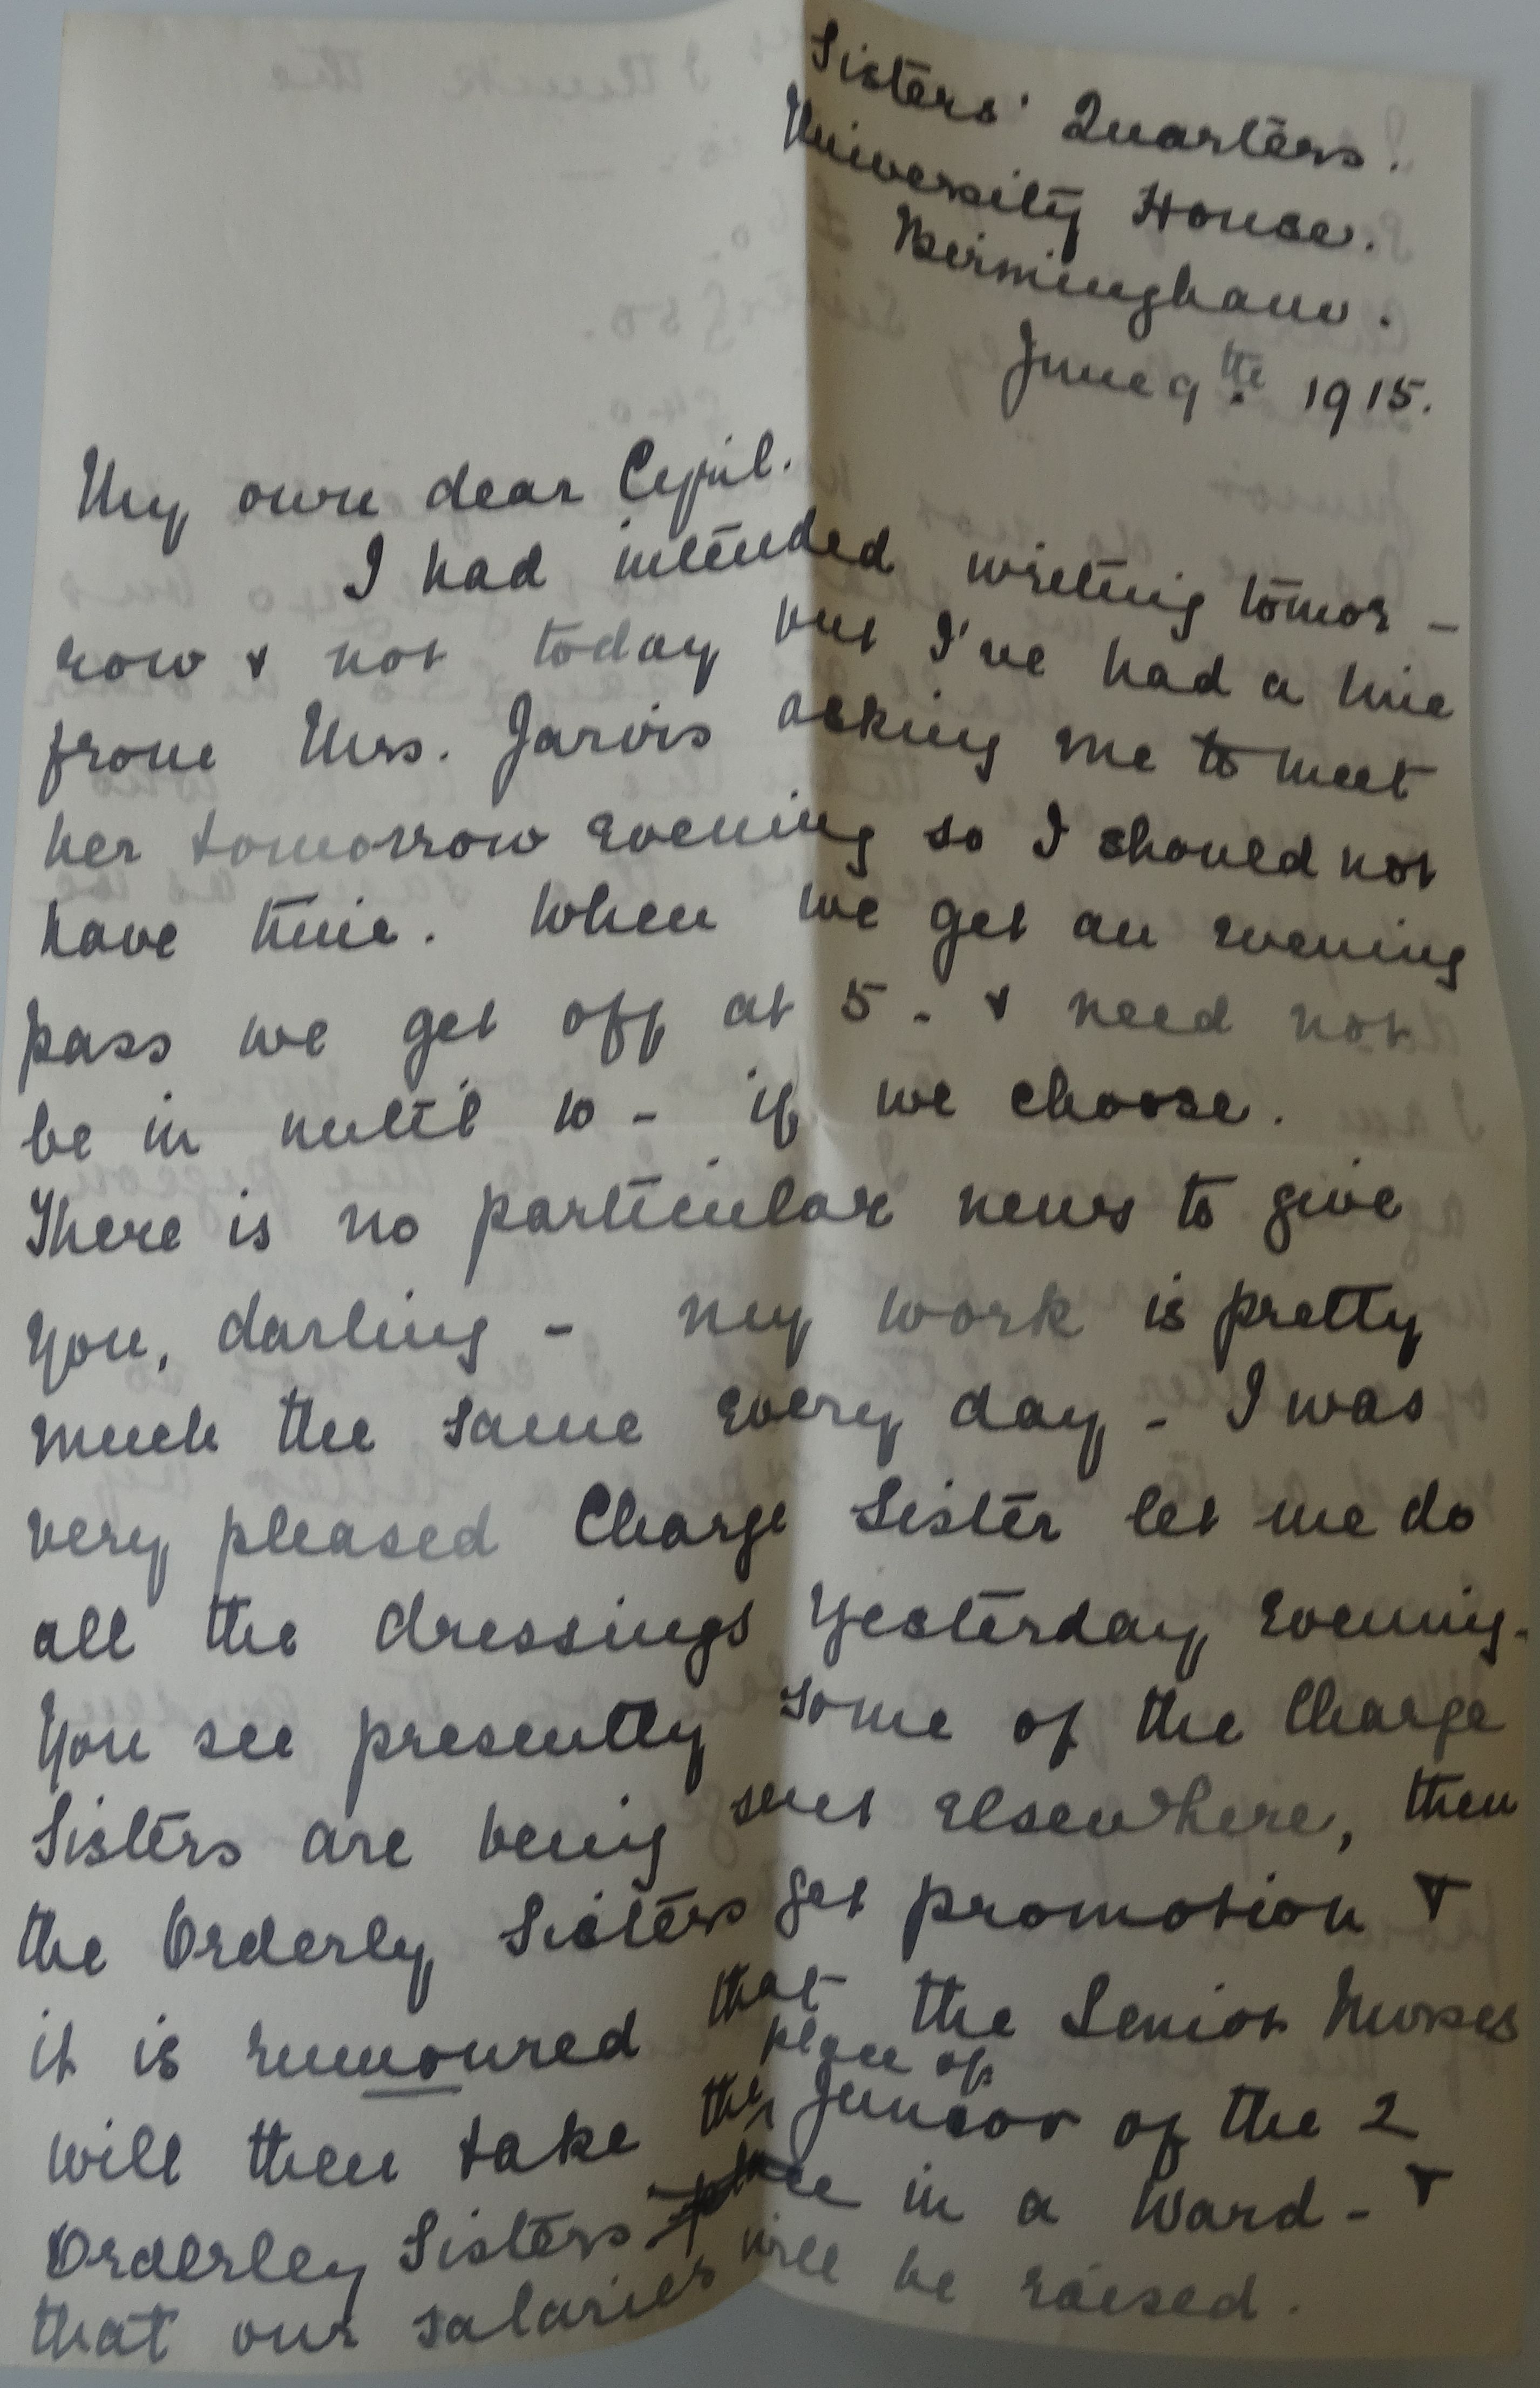 Sisters' Quarters.
University House.
Birmingham.
June 9th 1915.
My own dear Cyril.
I had intended writing tomor-
row & not today but I've had a line
from Mrs. Jarvis asking me to meet
her tomorrow evening so I should not
have time. When we get an evening
pass we get off at 5 - & need not
be in until 10 - if we choose.
There is no particular news to give
you, darling - my work is pretty
much the same every day - I was
very pleased Charge Sister let me do
all the dressings yesterday evening.
You see presently some of the Charge
Sisters are being sent elsewhere, then
the Orderly Sisters get promotion &
it is rumoured that the Senior Nurses
place of
will then take the Junior of the 2
Orderley Sisters place in a Ward - &
that our salaries will be raised.